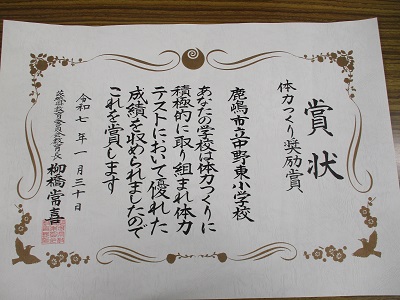 賞状
体力つくり奨励賞
鹿嶋市立中野東小学校
あなたの学校は体力つくりに
積極的に取り組まれ体力
テストにおいて優れた
成績を収められましたので
これを賞します
令和七年一月三十日
茨城県教育委員会教育長
柳橋常喜